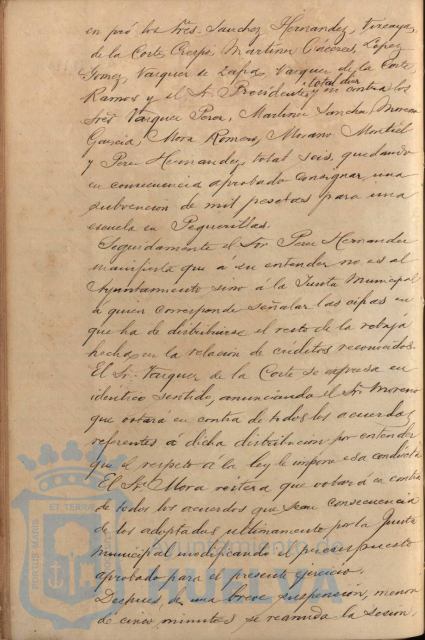 en pró los Sres. Sanchez Hernandez, Vizcaya,
de la Corte, Crespo, Martinez Cáceres, Lopez
Gomez, Vazquez de Zafra, Vazquez de la Corte
Ramos y el Sr. Presidente, total diez y en contra los
Sres Vazquez Perez, Martinez Sancha, Moreno
Garcia, Mora Romero, Morano Montiel
y Perez Hernandez, total seis, quedando
en consecuencia aprobado consignar una
subvención de mil pesetas para una
escuela en Peguerillas.
Seguidamente el Sr Perez Hernandez
manifiesta que á su entender no es al
Ayuntamiento sino á la Junta Municipal
á quien corresponde señalar las cifras en
que ha de distribuirse el resto de la rebaja
hecha en la relación de creditos reconocidos.
El Sr. Vazquez de la Corte se expresa en
identico sentido, anunciando el Sr Moreno
que votará en contra de todos los acuerdos
referentes a dicha distribucion por entender
que el respeto á la ley le impone esa conducta
El Sr Mora reitera que votará en contra
de todos los acuerdos que sean consecuencia
de los adoptados ultimamente por la Junta
municipal modificando el presupuesto
aprobado para el presente ejercicio.
Despues de una breve suspensión, menor
de cinco minutos se reanuda la sesion.
PORTUS MARIS
ET TERRAE
Ayuntamiento de
HUELVA